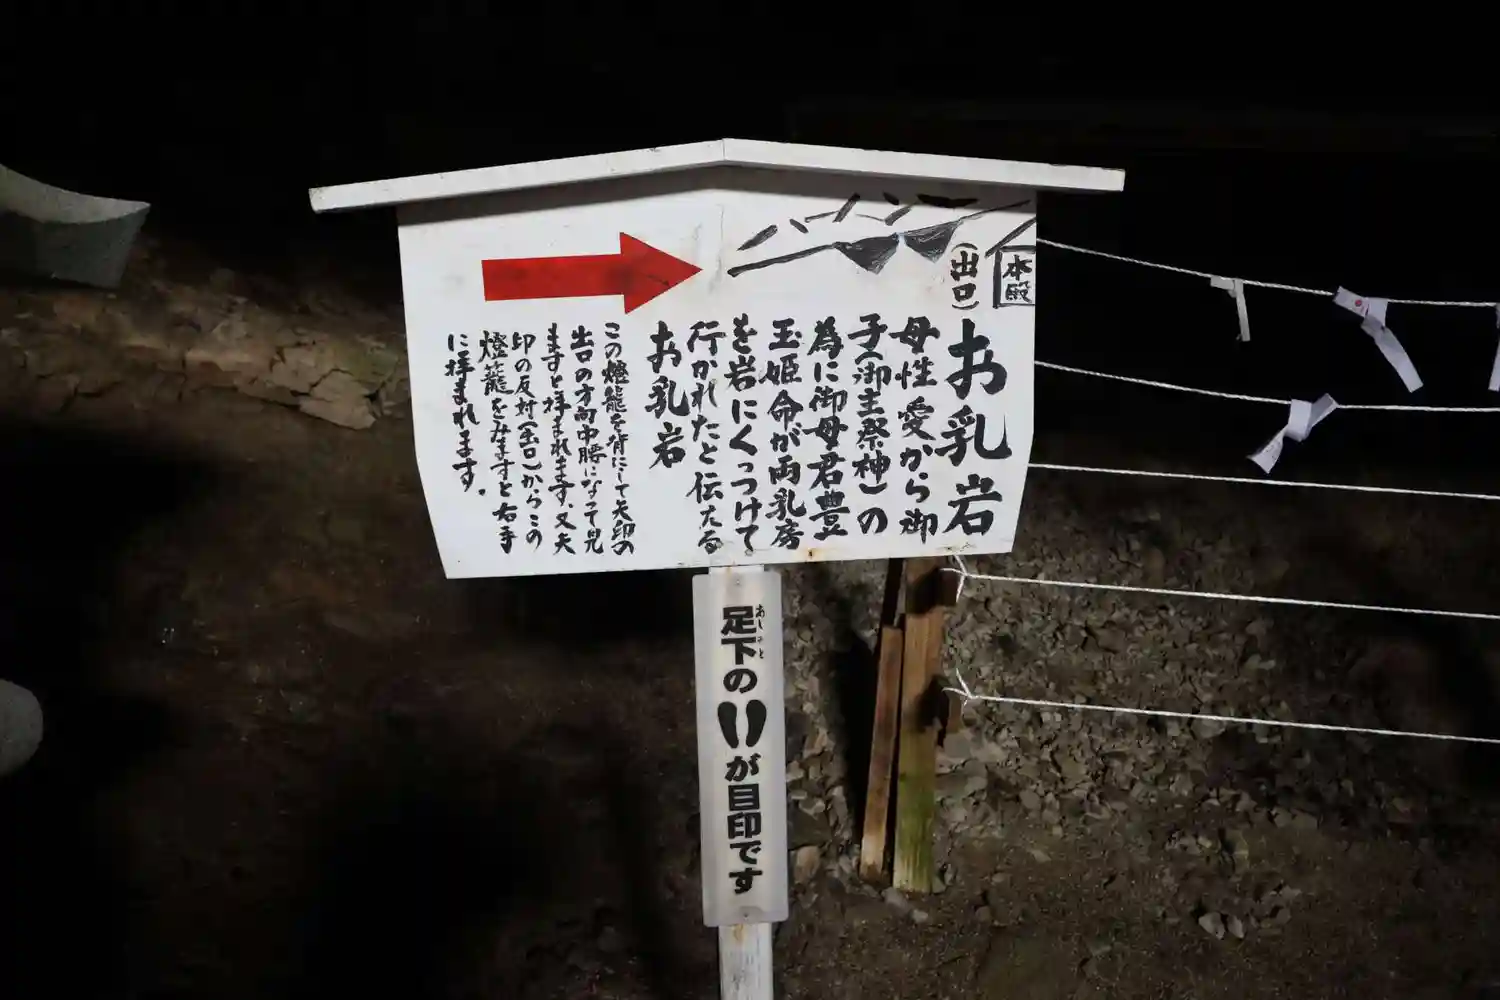 本殿
(出口)
お乳岩
母性愛から御
子(御主祭神)の
為に御母君豊
玉姫命が両乳房
を岩にくっつけて
行かれたと伝たる
お乳岩
この燈籠を背にして矢印の
出口の方向中腰になって見
ますと拝まれます。又矢
印の反対(出口)からこの
燈籠をみますと右手
に拝まれます。
あしもと
足下の
が目印です